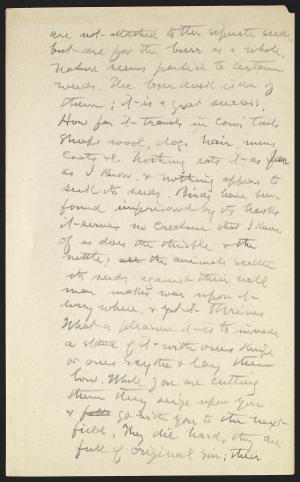 are not attached to the separate seeds,
but are for the burr as a whole.
Nature seems partial to certain
weeds. The burdock is one of
them; it is a great success.
How far it travels in cows' tails
sheeps wool, dogs hair, mens
coats &c. Nothing eats it as far
as I know & nothing appears to
seek its seeds. Birds have been
found imprisoned by its hooks
it serves no creature that I know
of as does the thistle & the
nettle; the animals scatter
its seeds against their will
man makes war upon it
every where, & yet it thrives
What a pleasure it is to invade
a stand of it with ones
or ones scythe & lay them
low. While you are cutting
them they seize upon you
& go with you to the next
field. They die hard; they are
full of original sin; their